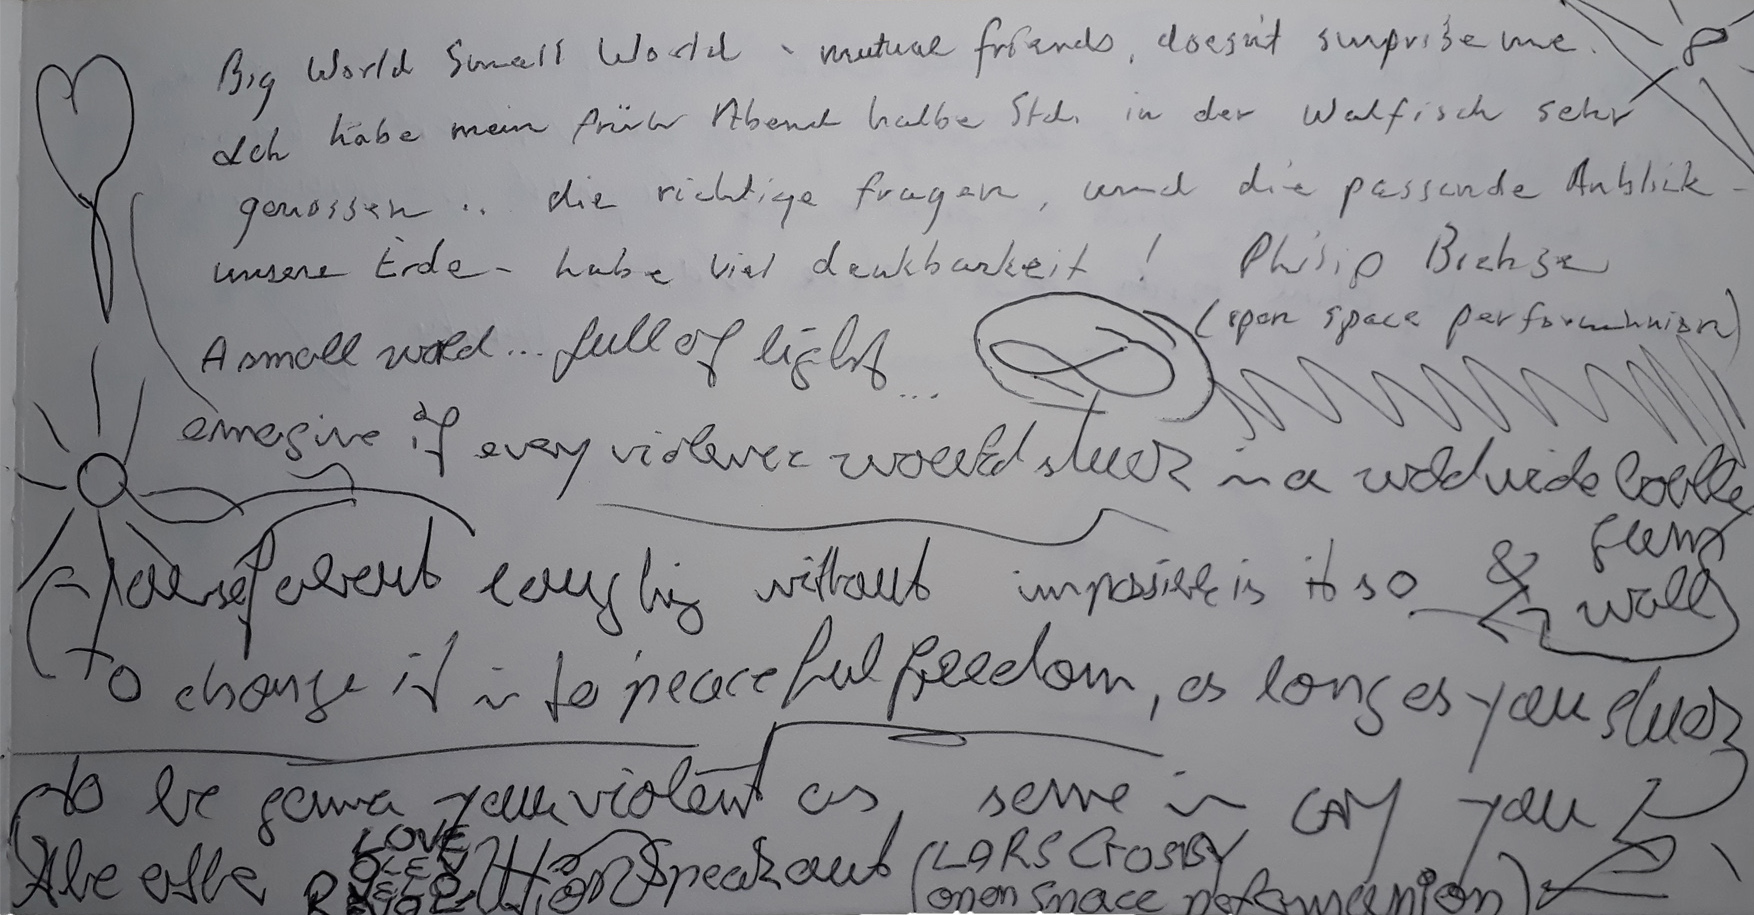 Big World Small World - mutual friends, doesn't surprise me.
Ich habe mein früh Abend halbe Std. in der Walfisch sehr
genossen .. die richtige fragen, und die passende Anblick -
unsere Erde - habe viel dankbarkeit ! Philip
(open space performunion)
A small world... full of light ...
emagine if every violence would stuck in a worldwide
&
yourself about laughing without impossible is it so
to change it in to peaceful freedom, as long as you stuck
to be gonna your violent as, serve in you
LOVE
Speakout (LARS CrosBY
open space performunion)